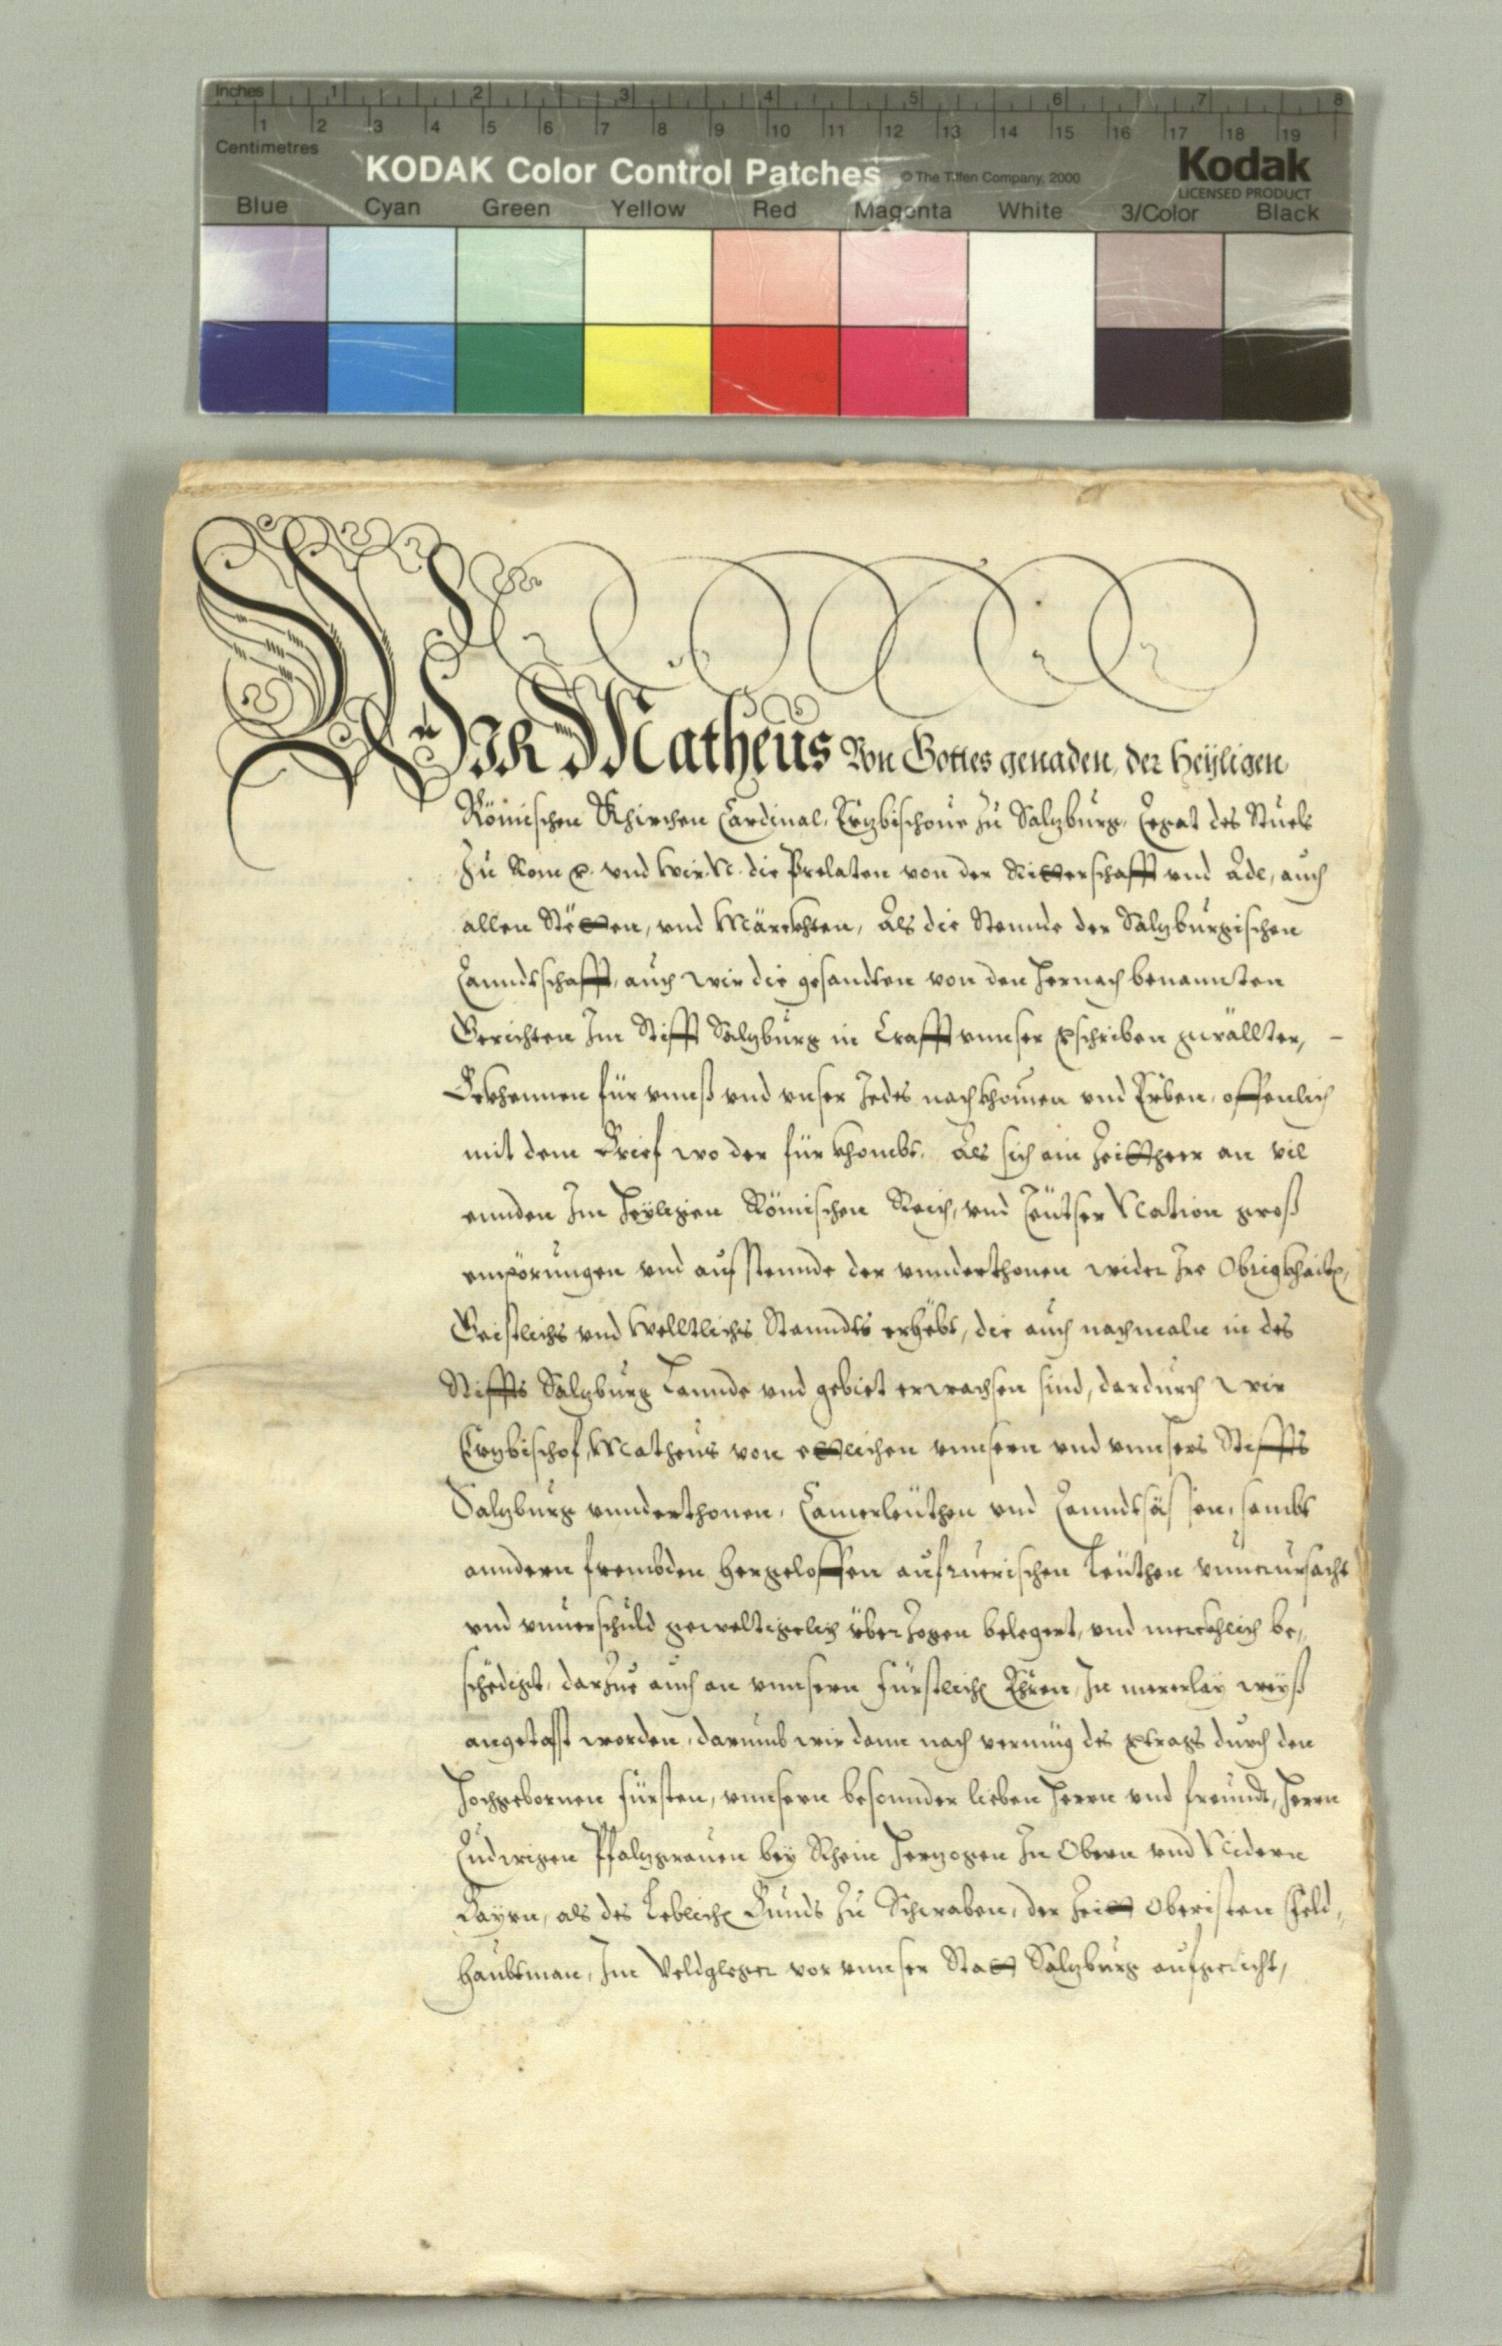 Inches 1 2 3 4 5 6 7 8
1 2 3 4 5 6 7 8 9 10 11 12 13 14 15 16 17 18 19
Centimetres
KODAK Color Control Patches © The Tiffen Company, 2000 Kodak
LICENSED PRODUCT
Blue Cyan Green Yellow Red Magenta White 3/Color Black
WIR Matheus Von Gottes genaden, der Heyligen
Römischen Khirchen Cardinal, Ertzbischoue zu Saltzburg, Legat des Stuels
Zu Rom etc. vnd Wir N. die Prelaten von der Ritterschafft vnd Adl, auch
allen Stetten, vnd Märckhten, Als die Stennde der Saltzburgischen
Lanndtschafft, auch wir die gesandten von den hernach benannten
Gerichten Im Stifft Saltzburg in Crafft vnnser verschriben gwällter,
Bekhennen für vnnß vnd vnser Jedes nachkhomen vnd Erben, offenlich
mit dem Brief wo der für khombt. Als sich ein Zeitther an vil
ennden Im Heyligen Römischen Reich, vnd Teutser Nation groß
empörungen vnd aufstennde der vnnderthonen wider Ire Obrigkhaiten,
Geistlichs vnd Welltlichs Stanndts erhebt, die auch nachmaln in des
Stiffts Saltzburg Lannde vnd gebiet erwachsen sind, dardurch wir
Ertzbischof Matheus von ettlichen vnnsern vnd vnnsers Stiffts
Saltzburg vnnderthonen, Camerleüthen vnd Lanndtsässen, sambt
anndern frembden hergeloffen aufruerischen Leüthen vnuerursacht
vnd vnuerschuld geweltigelich über Zogen belegert, vnd merckhlich be,
schedigt, darzue auch an vnnsern Fürstlichen Ehren, In mererlay weyß
angetasst worden, darumb wir dann nach vermüg des vertrags durch den
Hochgebornen Fürsten, vnnsern besonnder lieben Herrn vnd freundt, Herrn
Ludwigen Pfaltzgrauen bey Rhein Hertzogen In Obern vnd Nidern
Bayrn, als des Loblichen Bunds Zu Schwaben, der Zeitt Oberisten Feld,
haubtman, Im Veldgleger vor vnnser Statt Saltzburg aufgericht,